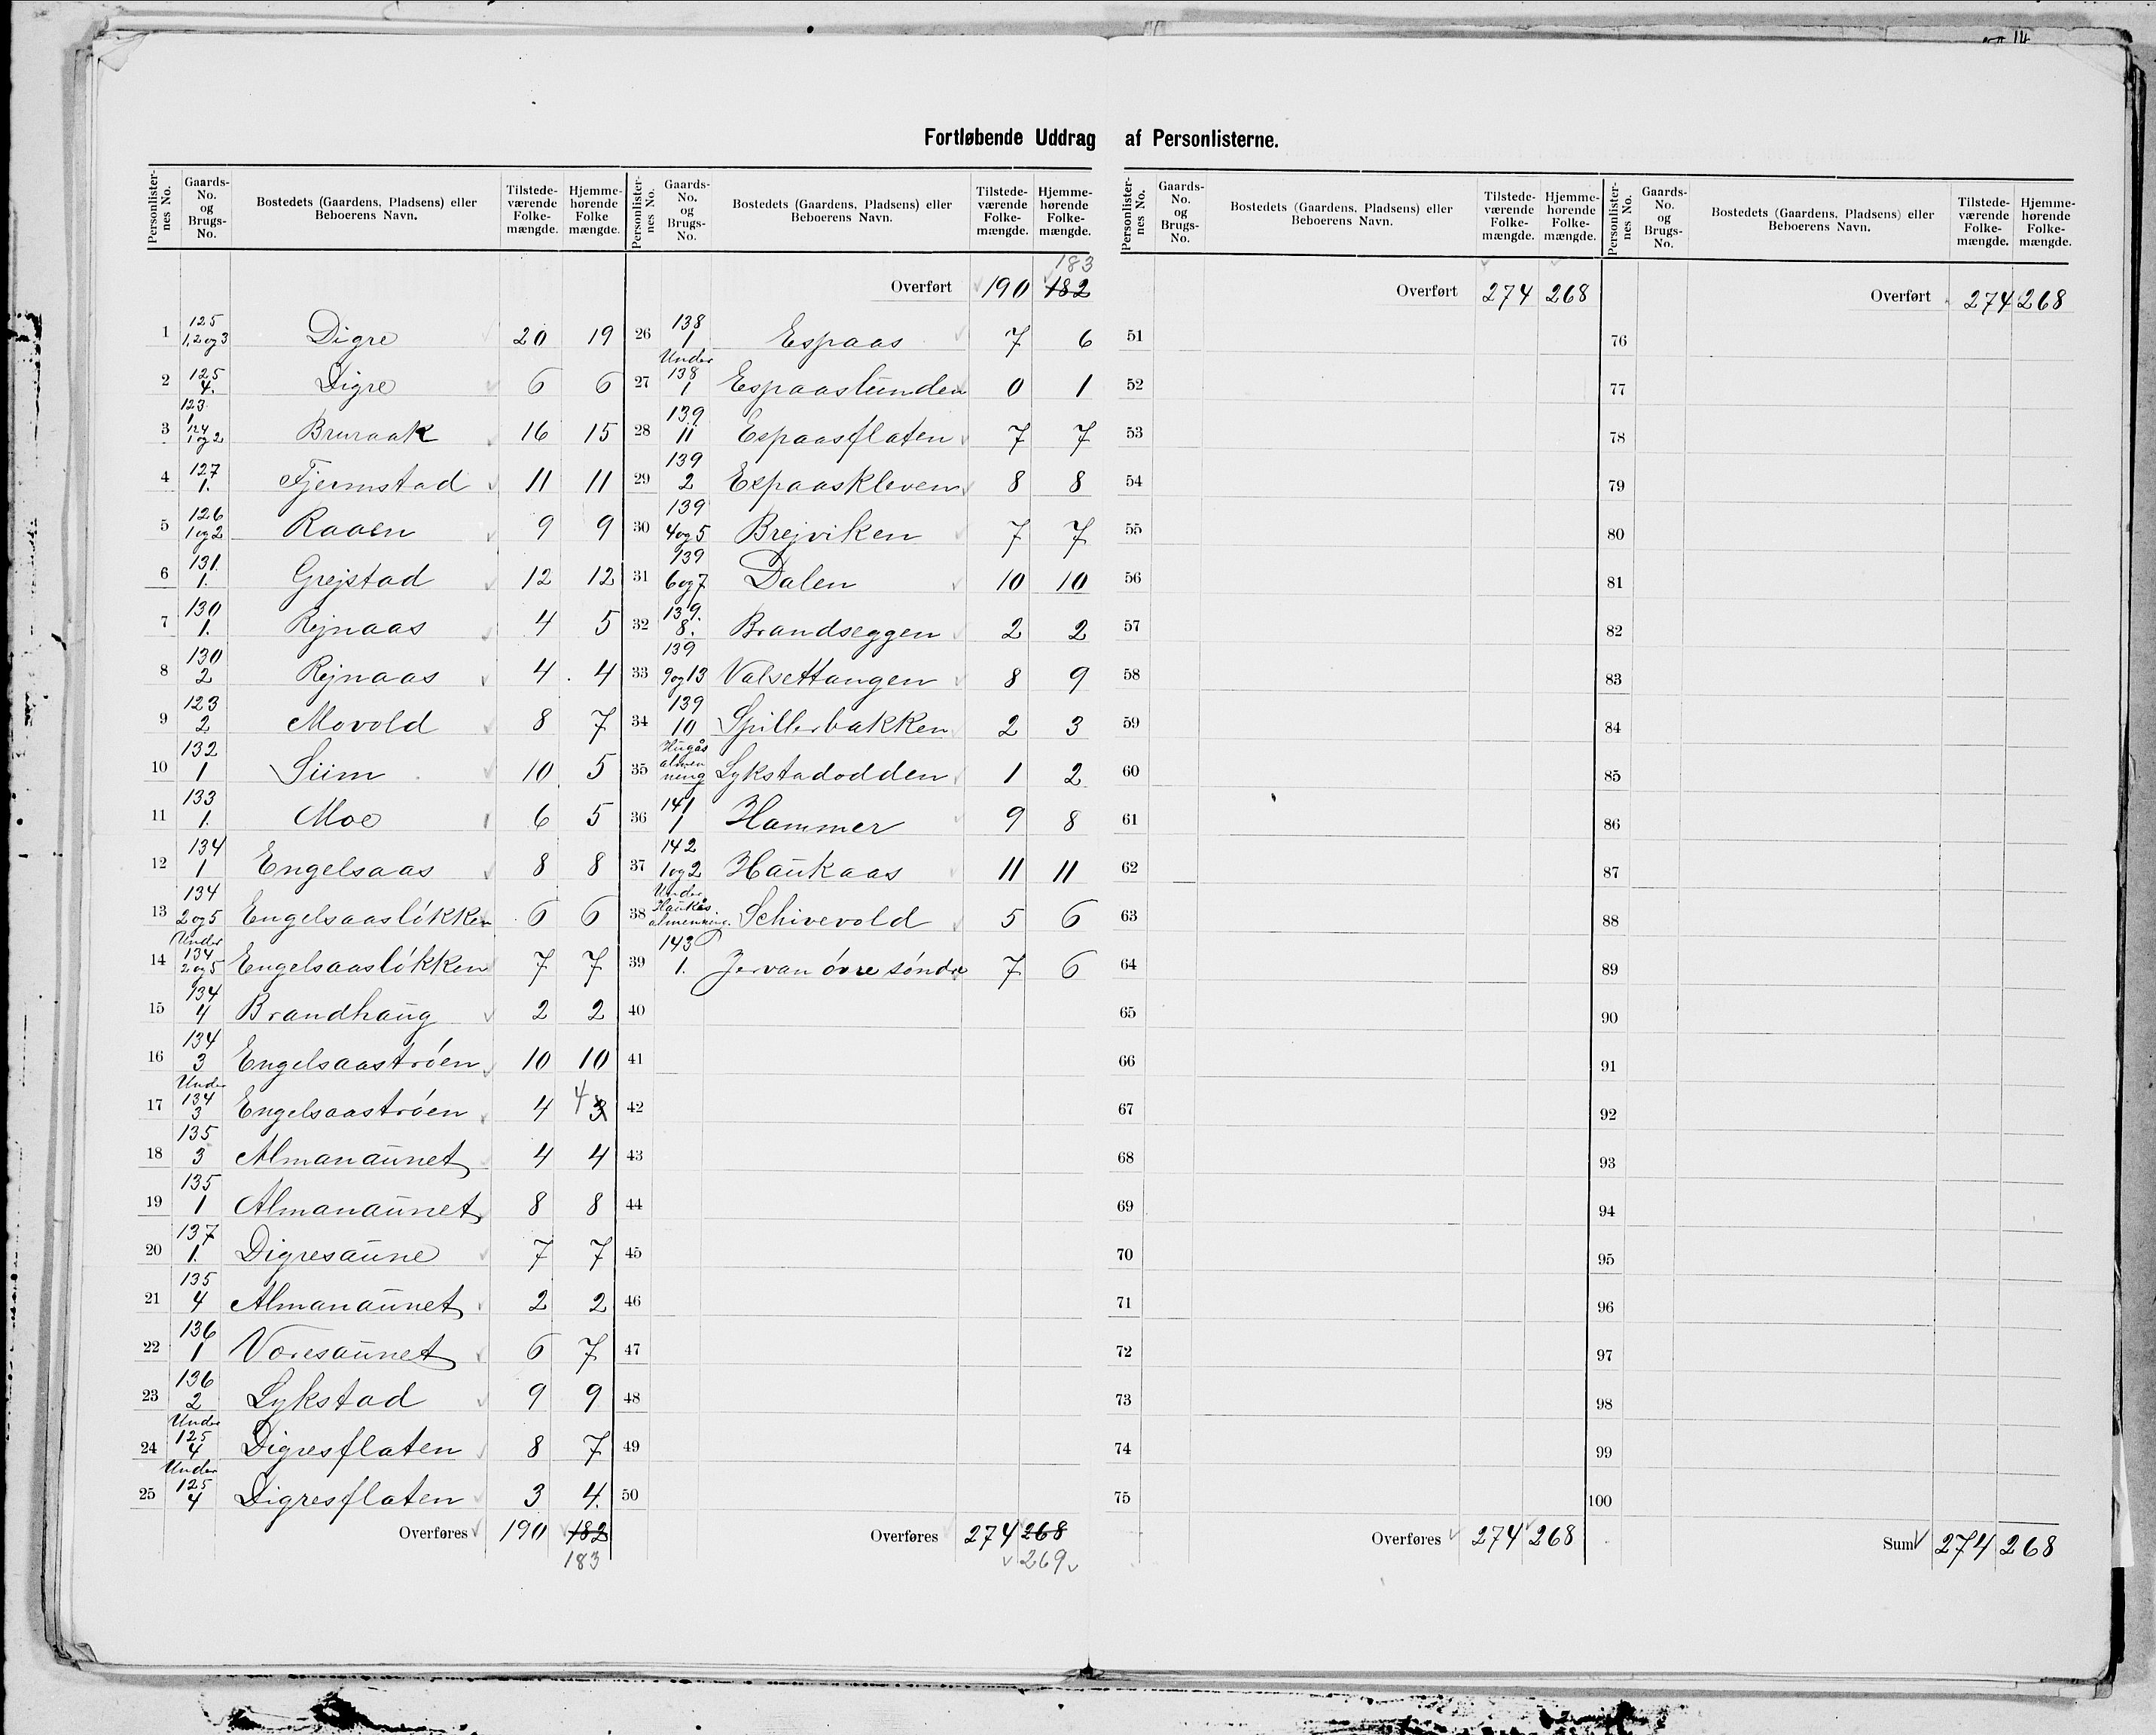 Fortløbende Uddrag af Personlisterne.
Personlisternes No. Gaards-No. og Brugs-No. Bostedets (Gaardens, Pladsens) eller Beboerens Navn. Tilstedeværende Folkemængde. Hjemmehørende Folkemængde.
1 125 1,2 og 3 Digre 20 19
2 125 4. Digre 6 6
3 123 1 124 1 og 2 Bruraak 16 15
4 127 1. Fjermstad 11 11
5 126 1 og 2 Raaen 9 9
6 131. 1. Grejstad 12 12
7 130 1. Rejnaas 4 5
8 130 2 Rejnaas 4 4
9 123 2 Movold 8 7
10 132 1 Siim 10 5
11 133 1. Moe 6 5
12 134 1 Engelsaas 8 8
13 134 2 og 5 Engelsaasløkken 6 6
14 Under 134 2 og 5 Engelsaasløkken 7 7
15 134 4 Brandhaug 2 2
16 134 3 Engelsaastrøen 10 10
17 Under 134 3 Engelsaastrøen 4 4 3
18 135 3 Almanaunet 4 4
19 135 1 Almanaunet 8 8
20 137 1. Digresaune 7 7
21 135 4 Almanaunet 2 2
22 136 1 Voresaunet 6 7
23 136 2 Lykstad 9 9
24 Under 125 4 Digresflaten 8 7
25 Under 125 4 Digresflaten 3 4.
Overføres 190 182
183
Personlisternes No. Gaards-No. og Brugs-No. Bostedets (Gaardens, Pladsens) eller Beboerens Navn. Tilstedeværende Folkemængde. Hjemmehørende Folkemængde.
183
Overført 190 182
26 138 1 Espaas 7 6
27 Under 138 1 Espaaslunden 0 1
28 139. 11 Espaasflaten 7 7
29 139 2 Espaaskleven 8 8
30 139 4 og 5 Brejviken 7 7
31 139 6 og 7 Dalen 10 10
32 139. 8. Brandseggen 2 2
33 139 9 og 13 Valsettangen 8 9
34 139 10 Spillerbakken 2 3
35 Hugås almenning Lykstadodden 1 2
36 141 1 Hammer 9 8
37 142 1 og 2 Haukaas 11 11
38 Under Haukås almenning. Schivevold 5 6
39 143 1. Jervan øvre søndre 7 6
40
41
42
43
44
45
46
47
48
49
50
Overføres 274 268
269
Personlisternes No. Gaards-No. og Brugs-No. Bostedets (Gaardens, Pladsens) eller Beboerens Navn. Tilstedeværende Folkemængde. Hjemmehørende Folkemængde.
Overført 274 268
51
52
53
54
55
56
57
58
59
60
61
62
63
64
65
66
67
68
69
70
71
72
73
74
75
Overføres 274 268
Personlisternes No. Gaards-No. og Brugs-No. Bostedets (Gaardens, Pladsens) eller Beboerens Navn. Tilstedeværende Folkemængde. Hjemmehørende Folkemængde.
Overført 274 268
76
77
78
79
80
81
82
83
84
85
86
87
88
89
90
91
92
93
94
95
96
97
98
99
100
Sum 274 268